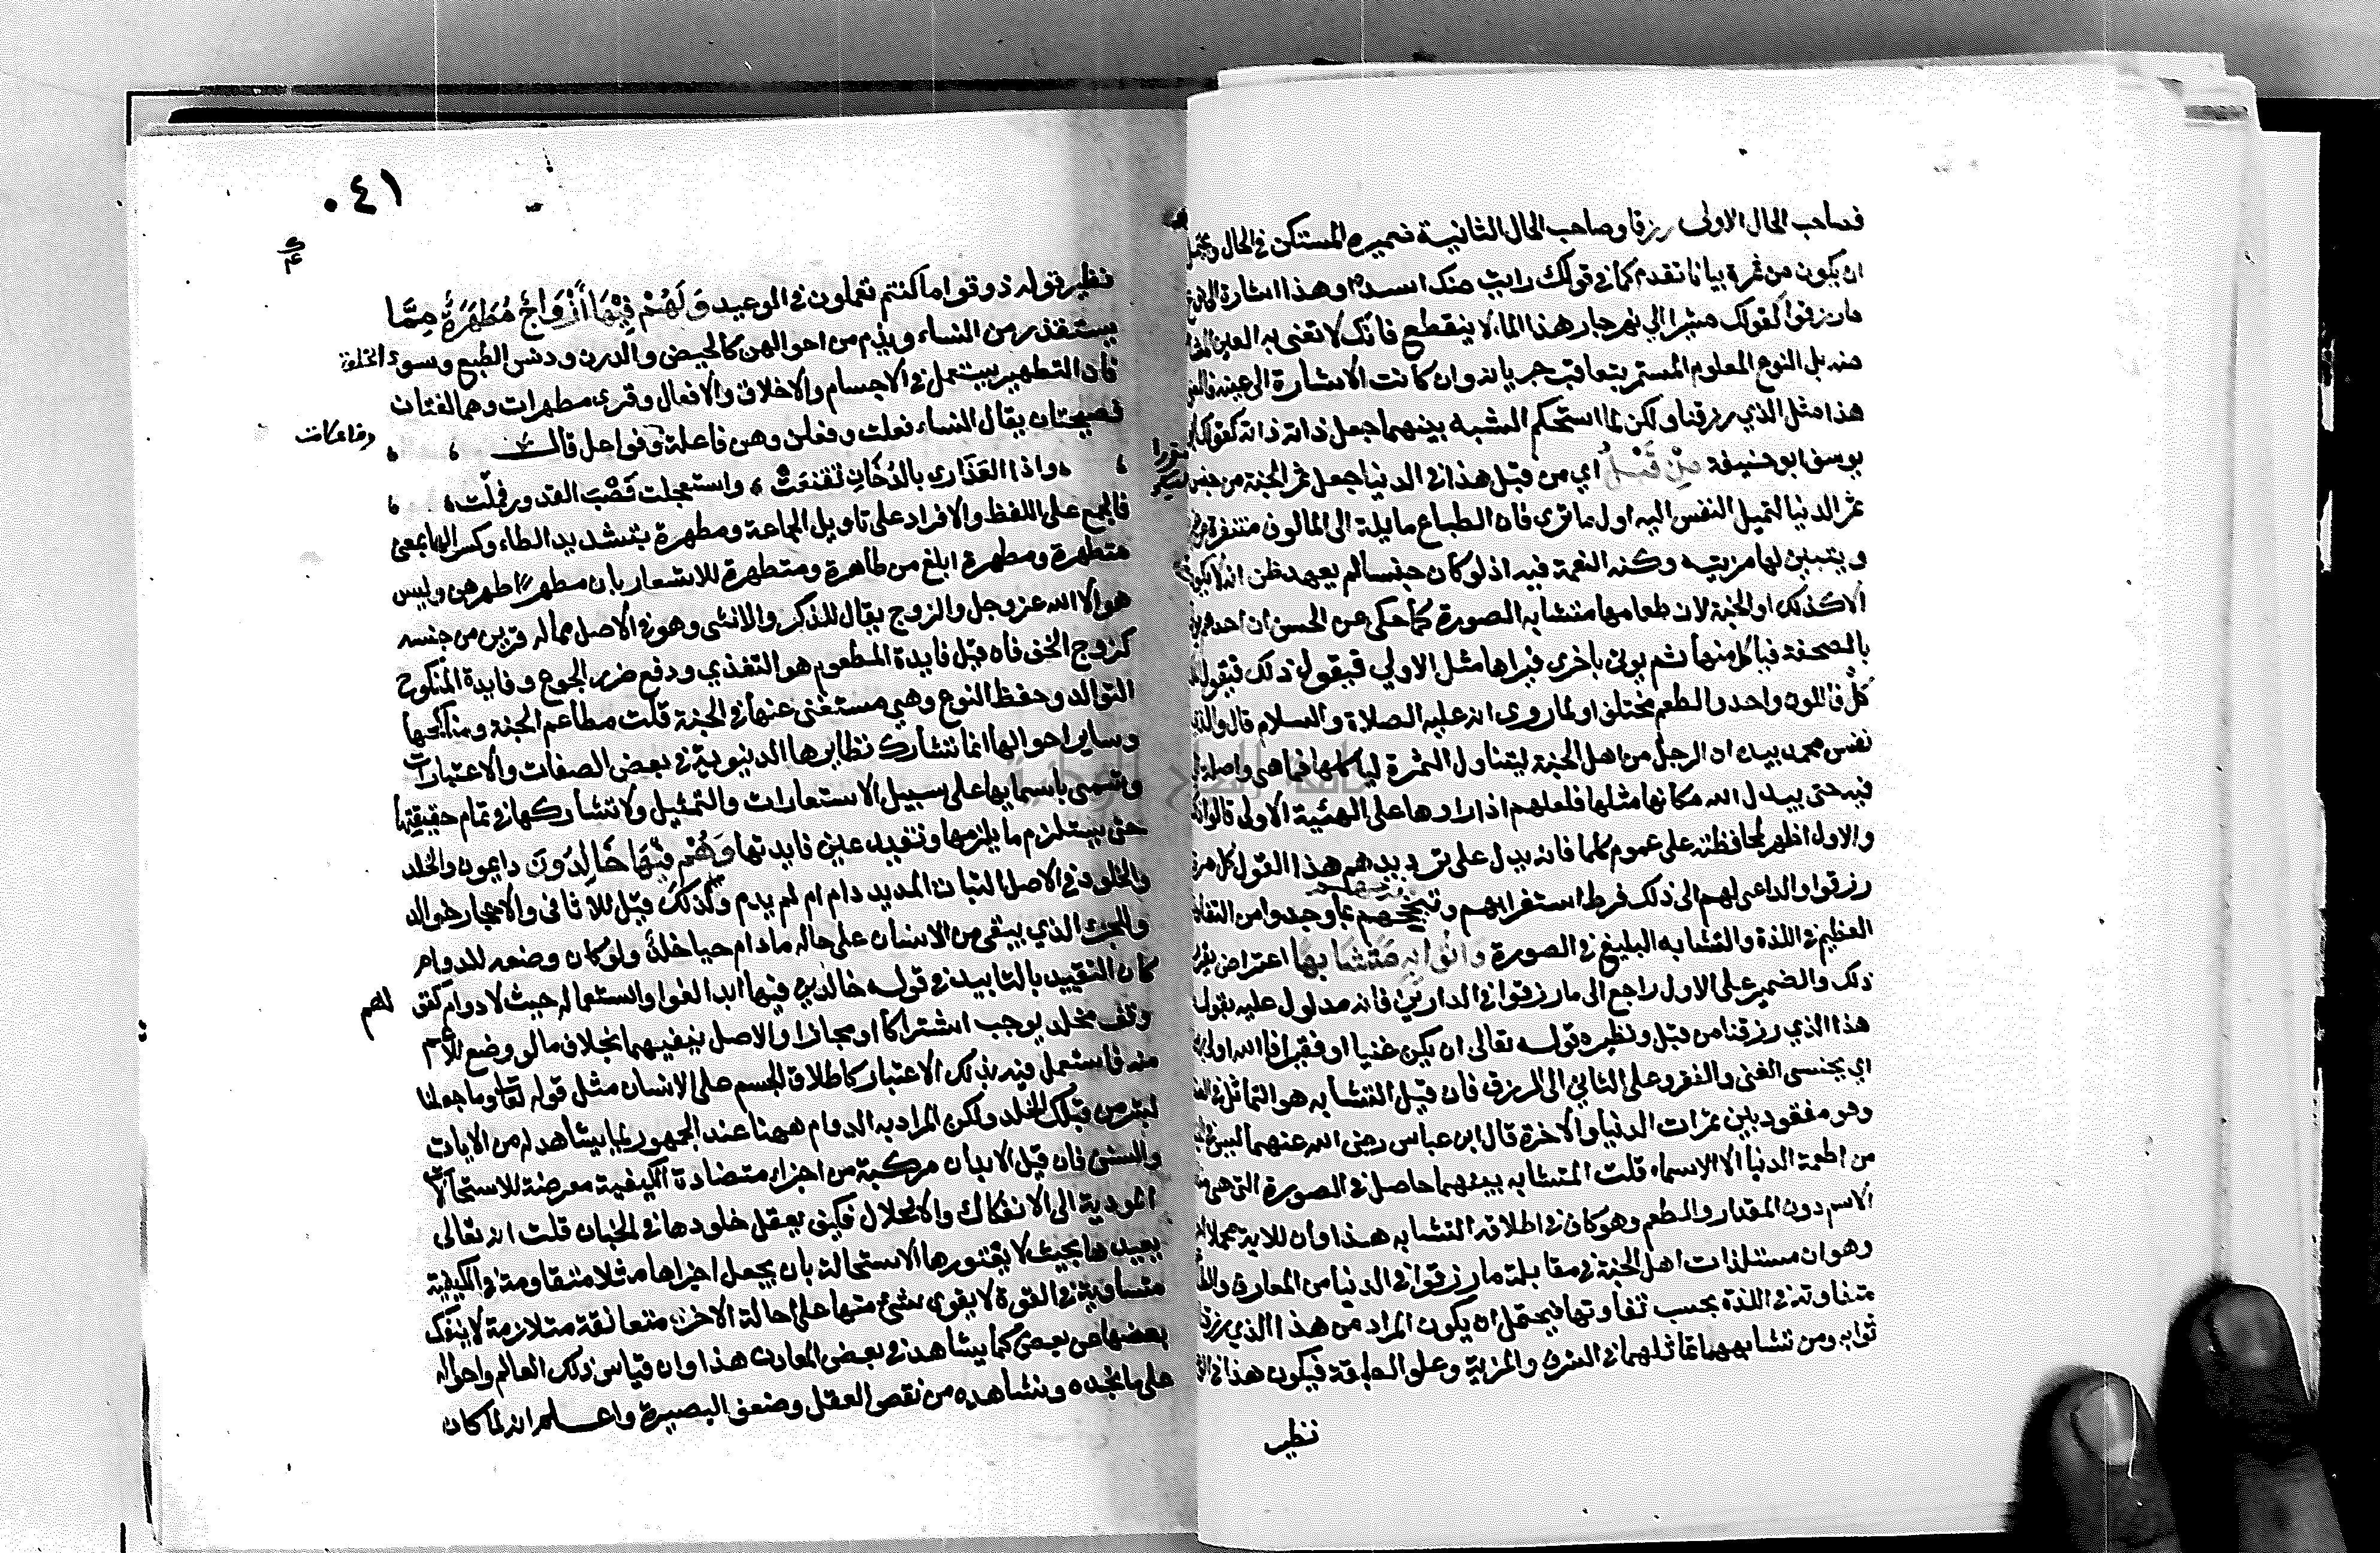 فصاحب الحال الاولى رزقا وصاحب الحال الثانية ضميره المستكن في الحال ويحتمل
ان يكون من ثمرة بيانا تقدم كما في قولك رايت منك اسدا وهذا اشارة الى نوع
ما رزقوا كقولك مشيرا الي نهر جار هذا الماء لا ينقطع فانك لا تعنى به العين
منه بل النوع المعلوم المستمر بتعاقب جريانه وان كانت الاشارة الى عينه
هذا مثل الذي رزقنا ولكن لما استحكم الشبه بينهما جعل ذاته ذاته كقولك
يوسف ابو حنيفة مِنْ قَبْلُ اي من قبل هذا في الدنيا جعل ثمر الجنة من جنس
ثمر الدنيا لتميل النفس اليه اول ما ترى فان الطباع مايلة الى المالوف متنفرة
ويتبين لها مزيته وكنه النعمة فيه اذ لو كان جنسا لم يعهد ظن انه لا يكون
الا كذلك او الجنة لان طعامها متشابه الصورة كما حكي عن الحسن ان احدهم
بالصحفة فياكل منها ثم يوتى باخرى فيراها مثل الاولي فيقول ذلك فيقول
كل فاللون واحد والطعم مختلف او لما روى انه عليه الصلاة والسلام قال والذي
نفس محمد بيده ان الرجل من اهل الجنة ليتناول الثمرة لياكلها فما هي واصلة
فيه حتى يبدل الله مكانها مثلها فلعلهم اذا راوها على الهئية الاولى قالوا
والاول اظهر لمحافظته على عموم كلما فانه يدل على ترديدهم هذا القول كل مرة
رزقوا والداعي لهم الى ذلك فرط استغرابهم وتبجحهم بما وجدوا من التفاوت
العظيم في اللذة والتشابه البليغ في الصورة وَاُتُوا بِهِ مُتَشَابِهًا اعتراض يقرر
ذلك والضمير على الاول راجع الى ما رزقوا في الدارين فانه مدلول عليه بقوله
هذا الذي رزقنا من قبل ونظيره قوله تعالى ان يكن غنيا او فقيرا فالله اولى
اي بجنسى الغنى والفقر وعلى الثاني الى الرزق فان قيل التشابه هو التماثل في
وهو مفقود بين ثمرات الدنيا والاخرة قال ابن عباس رضى الله عنهما ليس في
من اطعمة الدنيا الا الاسماء قلت التشابه بينهما حاصل في الصورة التي هي
الاسم دون المقدار والطعم وهو كاف في اطلاقه التشابه هذا وان للاية محملا
وهو ان مستلذات اهل الجنة في مقابلة ما رزقوا في الدنيا من المعارف
متفاوتة في اللذة بحسب تفاوتها فيحتمل ان يكون المراد من هذا الذي رزقنا
ثوابه ومن تشابههما تماثلهما في الشرف والمزية وعلو الطبقة فيكون هذا في
نظير
٠٤١
نظير قوله ذوقوا ما كنتم تعملون في الوعيد وَلَهُمْ فِيْهَا اَزْوَاجٌ مُطَهَرَةٌ مِمَّا
يستقذر من النساء ويذم من احوالهن كالحيض والدرن ودنس الطبع وسوء الخلق
فان التطهير يستعمل في الاجسام والاخلاق والافعال وقرئ مطهرات وهما لغتان
فصيحتان يقال النساء فعلت وفعلن وهن فاعلة وفواعل قالت
وفاعلات
واذا العَذَارى بالدُخَانِ تقنعَتْ واستعجلت نَصْبَ القدور فملّت
فالجمع على اللفظ والافراد على تاويل الجماعة ومطهرة بتشديد الطاء وكسر الهاء بمعنى
متطهرة ومطهرة ابلغ من طاهرة ومتطهرة للاشعار بان مطهرا طهرهن وليس
هو الا الله عز وجل والزوج يقال للذكر والانثى وهو في الاصل لما له قرين من جنسه
كزوج الخف فان قيل فايدة المطعوم هو التغذي ودفع ضرر الجوع وفايدة المنكوح
التوالد وحفظ النوع وهي مستغنى عنها في الجنة قلت مطاعم الجنة ومناكحها
وساير احوالها انما تشارك نظايرها الدنيوية في بعض الصفات والاعتبارات
وتسمى باسمايها على سبيل الاستعارات والتمثيل ولا تشاركها في تمام حقيقتها
حتى يستلزم ما يلزمها وتفيد عين فايدتها وَهُمْ فِيْهَا خَالِدُوْنَ دايمون والخلد
والخلود في الاصل الثبات المديد دام ام لم يدم ولذلك قيل للاثافي والاحجار خوالد
والجزء الذي يبقى من الانسان على حاله ما دام حيا خلد ولو كان وضعه للدوام
كان التقييد بالتابيد في قوله خالدين فيها ابدا لغوا واستعماله حيث لا دوام كقولهم
وقف مخلد يوجب اشتراكا او مجازا والاصل ينفيهما بخلاف ما لو وضع للاعم
منه فاستعمل فيه بذلك الاعتبار كاطلاق الجسم على الانسان مثل قوله تعا وما جعلنا
لبشر من قبلك الخلد ولكن المراد به الدوام ههنا عند الجمهور لما يشاهد له من الايات
والسنن فان قيل الابدان مركبة من اجزاء متضادة الكيفية معرضة للاستحالات
المودية الى الانفكاك والانحلال فكيف يعقل خلودها في الجنان قلت انه تعالى
يعيدها بحيث لا يعتورها الاستحالة بان يجعل اجزاها مثلا متقاومة في الكيفية
متساوية في القوة لا يقوى شئ منها على احالة الاخر متعانقة متلازمة لا ينفك
بعضها عن بعض كما يشاهد في بعض المعادن هذا وان قياس ذلك العالم واحواله
على ما نجده ونشاهده من نقص العقل وضعف البصيرة واعلم انه لما كان